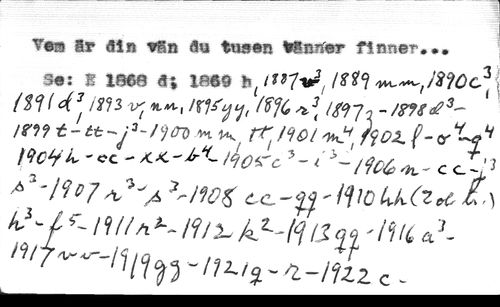 Vem är din vän du tusen vänner finner...
Se: E 1868 d; 1869 h, 1887 v³, 1889 mm, 1890 c³,
1891 d³, 1893 v, nn, 1895 yy, 1896 r³, 1897 z - 1898 d³ -
1899 t - tt - j³ - 1900 mm, tt, 1901 m⁴, 1902 l - o⁴ - q⁴
1904 h - cc - xx - b⁴ - 1905 c³ - i³ - 1906 n - cc - j³
s³ - 1907 r³ - s³ - 1908 cc - qq - 1910 hh (2 d h.)
h³ - f⁵ - 1911 r² - 1912 k² - 1913 qq - 1916 a³ -
1917 vv - 1919 gg - 1921 q - r - 1922 c -